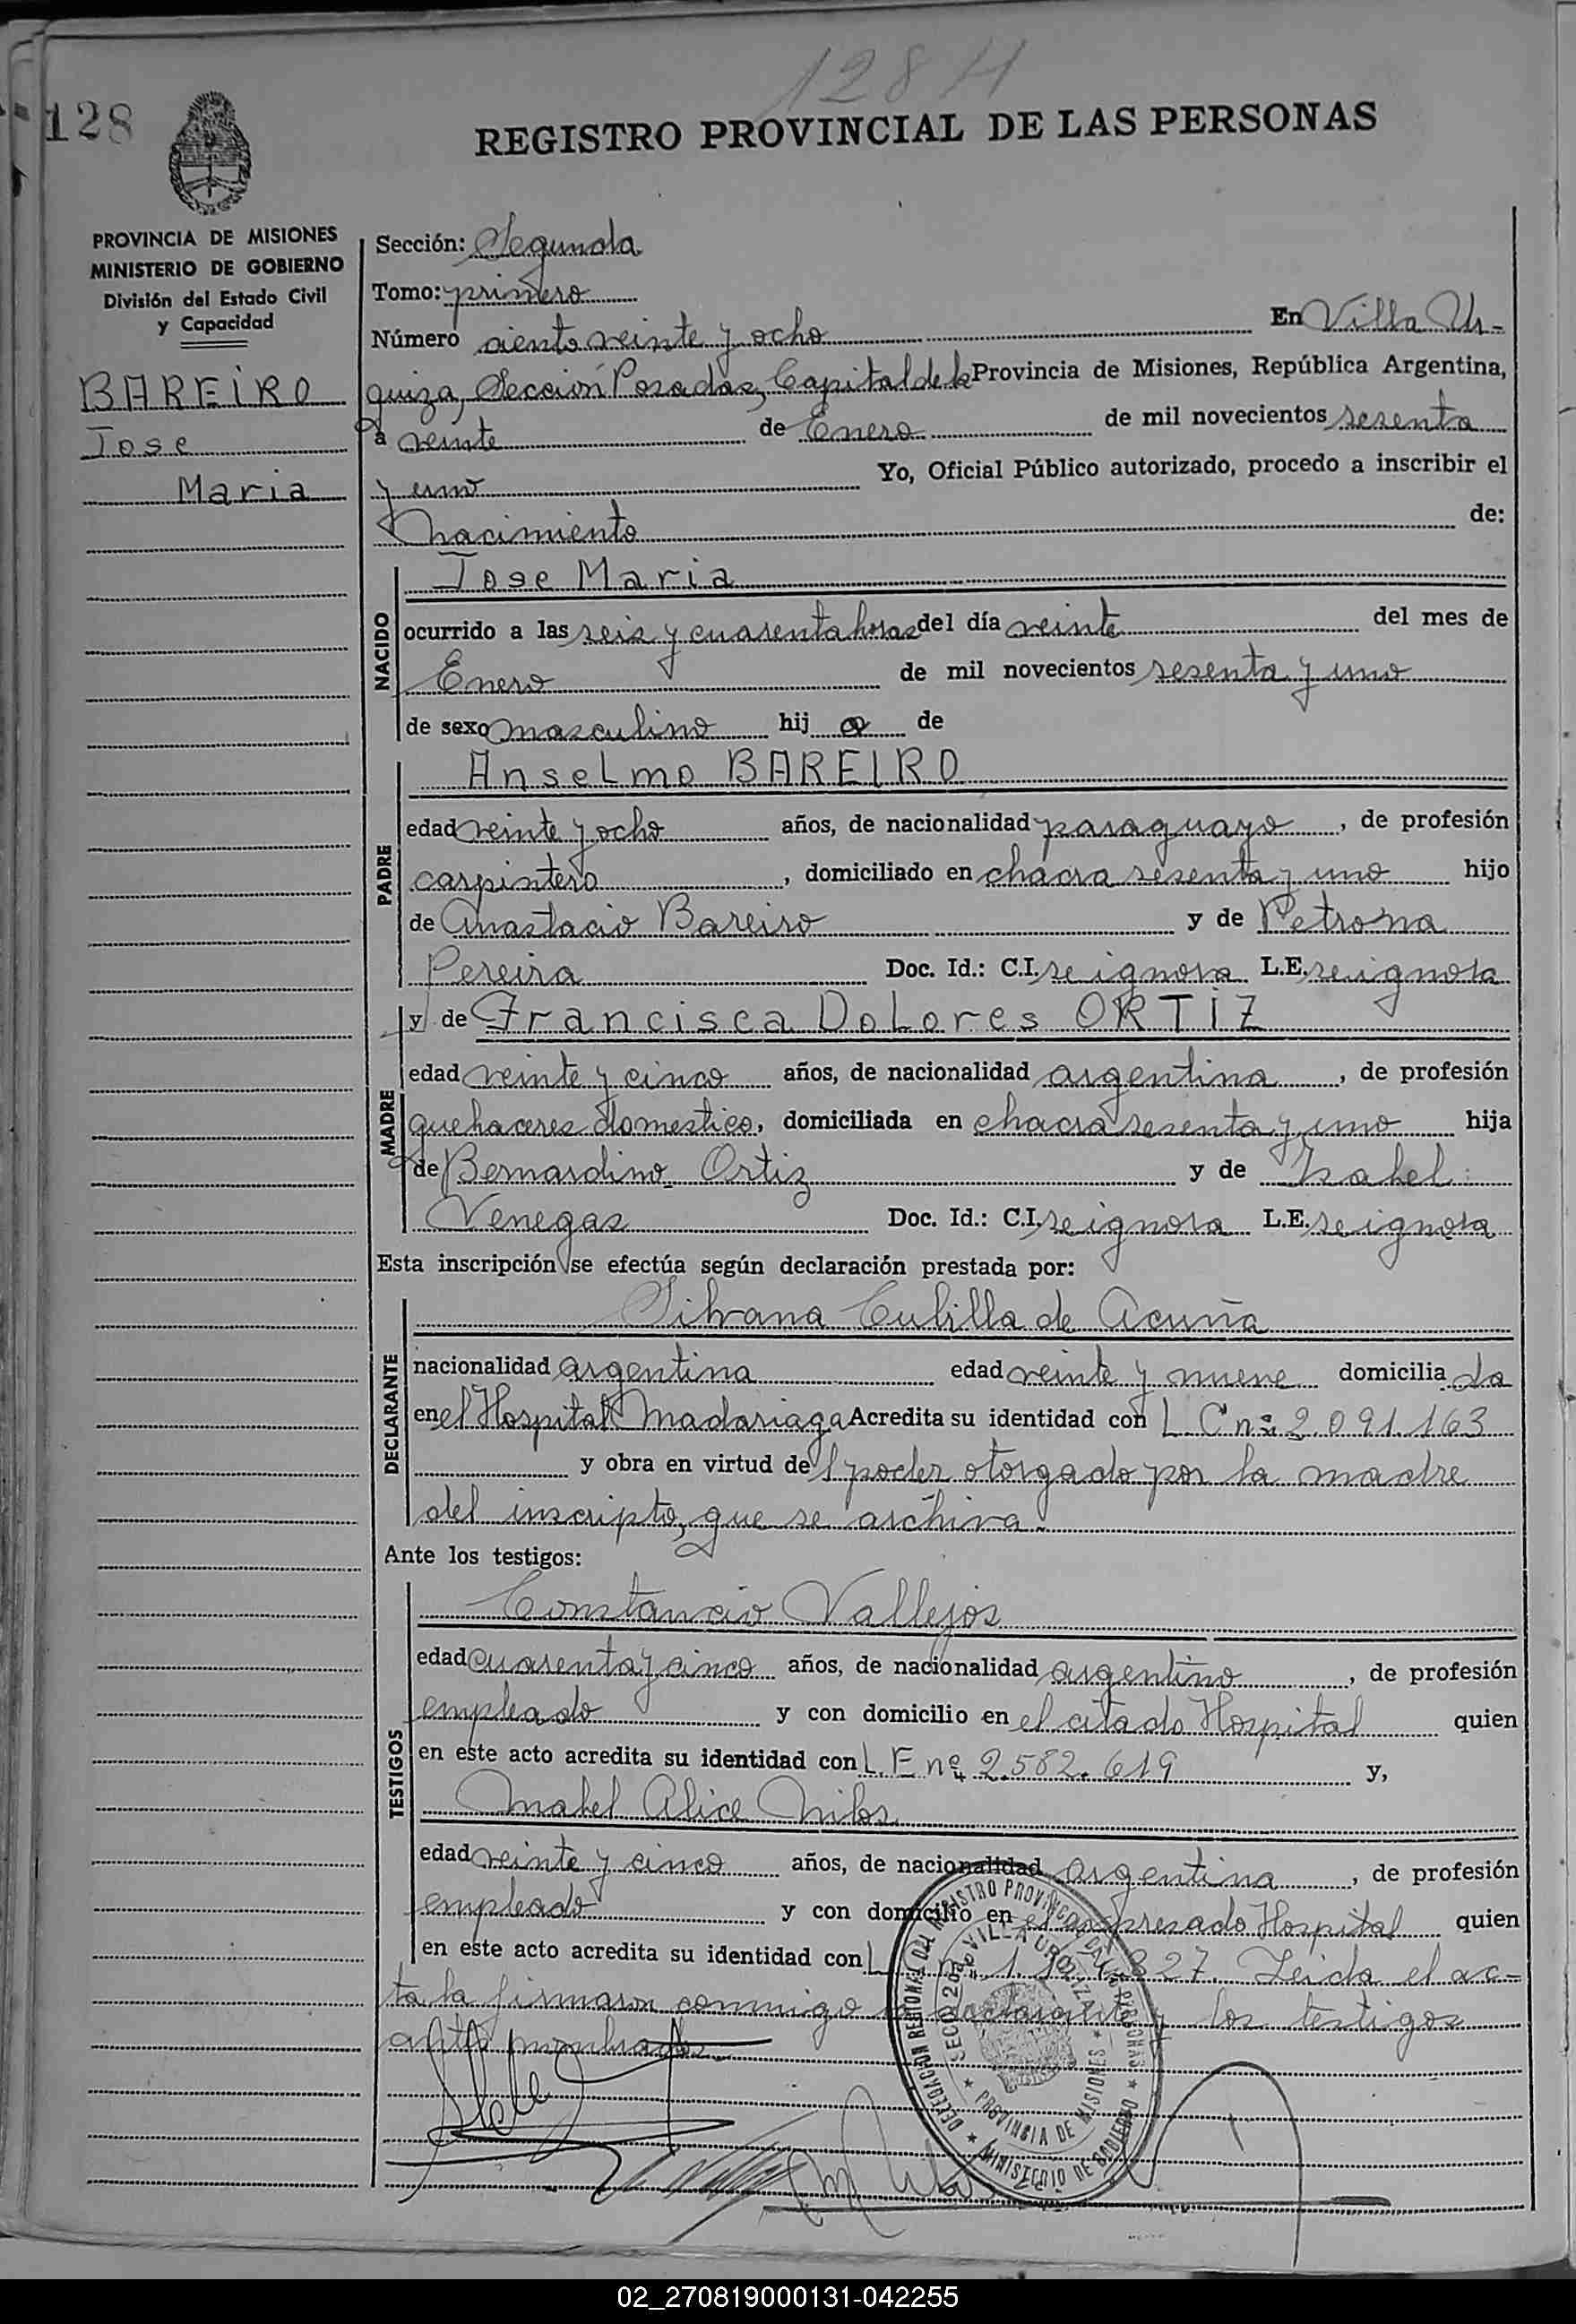 128 H
128
REGISTRO PROVINCIAL DE LAS PERSONAS
PROVINCIA DE MISIONES
MINISTERIO DE GOBIERNO
División del Estado Civil
y Capacidad
BAREIRO
Jose
Maria
Sección: Segunda
Tomo: primero
Número ciento veinte y ocho En Villa Ur-
quiza, Sección Posadas, Capital de la Provincia de Misiones, República Argentina,
a veinte de Enero de mil novecientos sesenta
y uno Yo, Oficial Público autorizado, procedo a inscribir el
nacimiento de:
NACIDO
Jose Maria
ocurrido a las seis y cuarenta horas del día veinte del mes de
Enero de mil novecientos sesenta y uno
de sexo masculino hij o de
PADRE
Anselmo BAREIRO
edad veinte y ocho años, de nacionalidad paraguayo, de profesión
carpintero, domiciliado en chacra sesenta y uno hijo
de Anastacio Bareiro y de Petrona
Pereira Doc. Id.: C.I. se ignora L.E. se ignora
y de Francisca Dolores ORTIZ
MADRE
edad veinte y cinco años, de nacionalidad argentina, de profesión
quehaceres domestico, domiciliada en chacra sesenta y uno hija
de Bernardino Ortiz y de Isabel
Venegas Doc. Id.: C.I. se ignora L.E. se ignora
Esta inscripción se efectúa según declaración prestada por:
DECLARANTE
Silvana Cubilla de Acuña
nacionalidad argentina edad veinte y nueve domicilia da
en el Hospital Madariaga Acredita su identidad con L C nº 2.091.163
y obra en virtud de l poder otorgado por la madre
del inscripto, que se archiva.
Ante los testigos:
TESTIGOS
Constancio Vallejos
edad cuarenta y cinco años, de nacionalidad argentino, de profesión
empleado y con domicilio en el citado Hospital quien
en este acto acredita su identidad con L. E nº 2.582.619 y,
Mabel Alice
edad veinte y cinco años, de nacionalidad argentina, de profesión
empleado y con domicilio en el expresado Hospital quien
en este acto acredita su identidad con L 327. Leida el ac-
ta la firmaron conmigo la declarante y los testigos
antes nombrados
DELEGACION REGIONAL DEL REGISTRO PROVINCIAL DE LAS PERSONAS
MINISTERIO DE GOBIERNO
SECC. 2da VILLA URQUIZA
PROVINCIA DE MISIONES
02_270819000131-042255